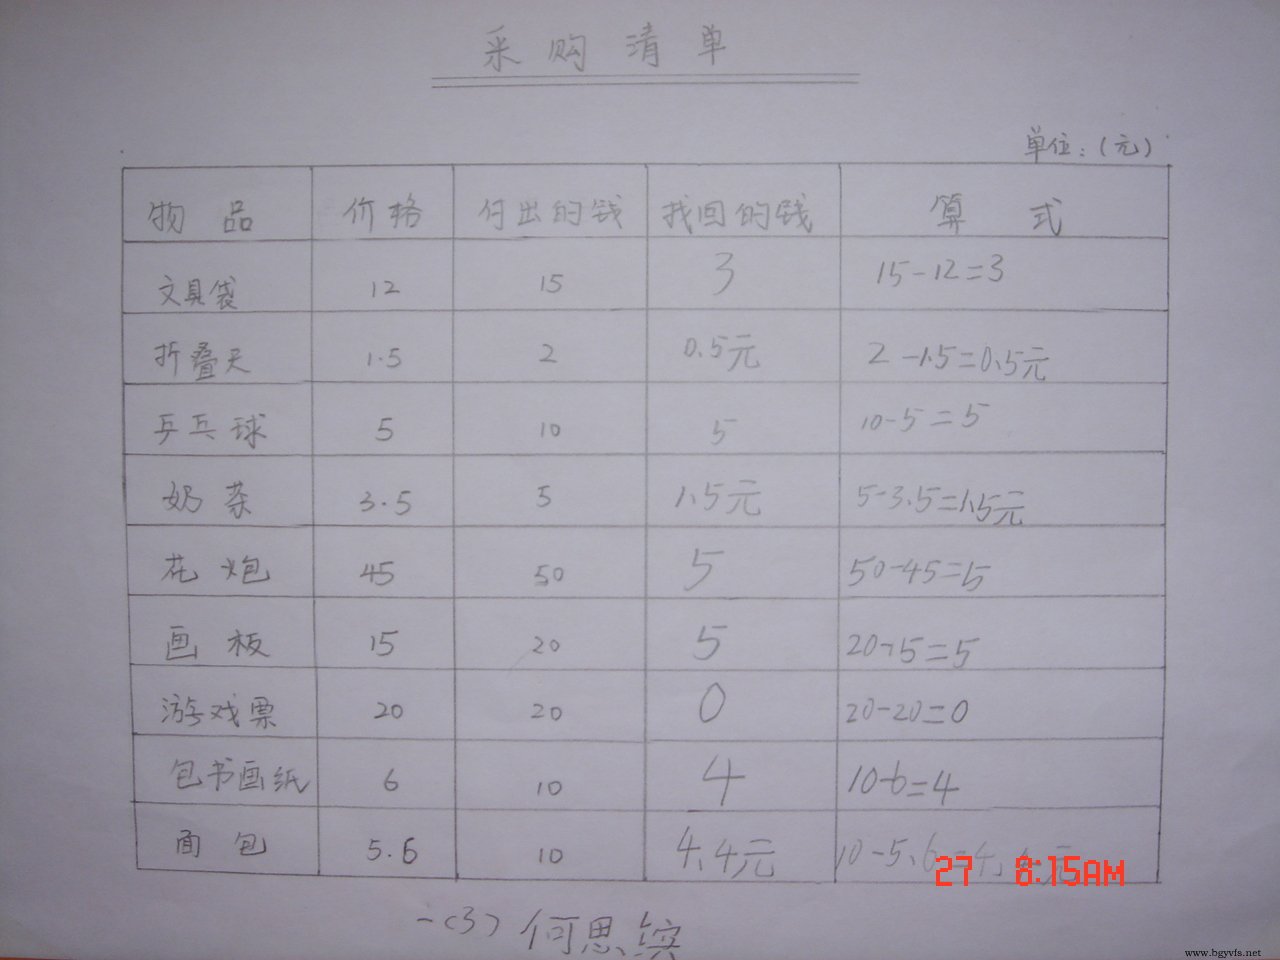 采购清单
单位：（元）
物品 价格 付出的钱 找回的钱 算式
文具袋 12 15 3 15-12=3
折叠天 1.5 2 0.5元 2-1.5=0.5元
乒乓球 5 10 5 10-5=5
奶茶 3.5 5 1.5元 5-3.5=1.5元
花炮 45 50 5 50-45=5
画板 15 20 5 20-15=5
游戏票 20 20 0 20-20=0
包书画纸 6 10 4 10-6=4
面包 5.6 10 4.4元 10-5.6=4.4元
27 8:15AM
一(3) 何思
www.bgyvfs.net